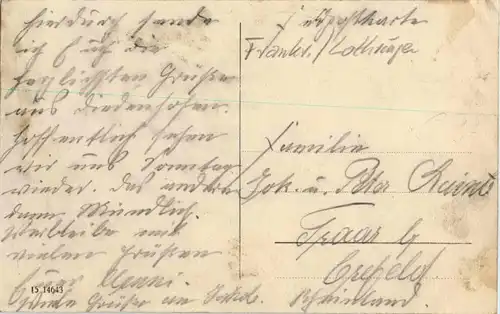 Hierdurch sende
ich Euch die
herzlichsten Grüße
aus Diedenhofen.
Hoffentlich sehen
wir uns Sonntag
wieder. Das andere
dann Mündlich.
Verbleibe mit
vielen Grüßen
Euer
Viele Grüße an
15 14643
Feldpostkarte
Frankr./Lothringen
Familie
Joh. u. Peter
Traar b/
Crefeld
Rheinland.